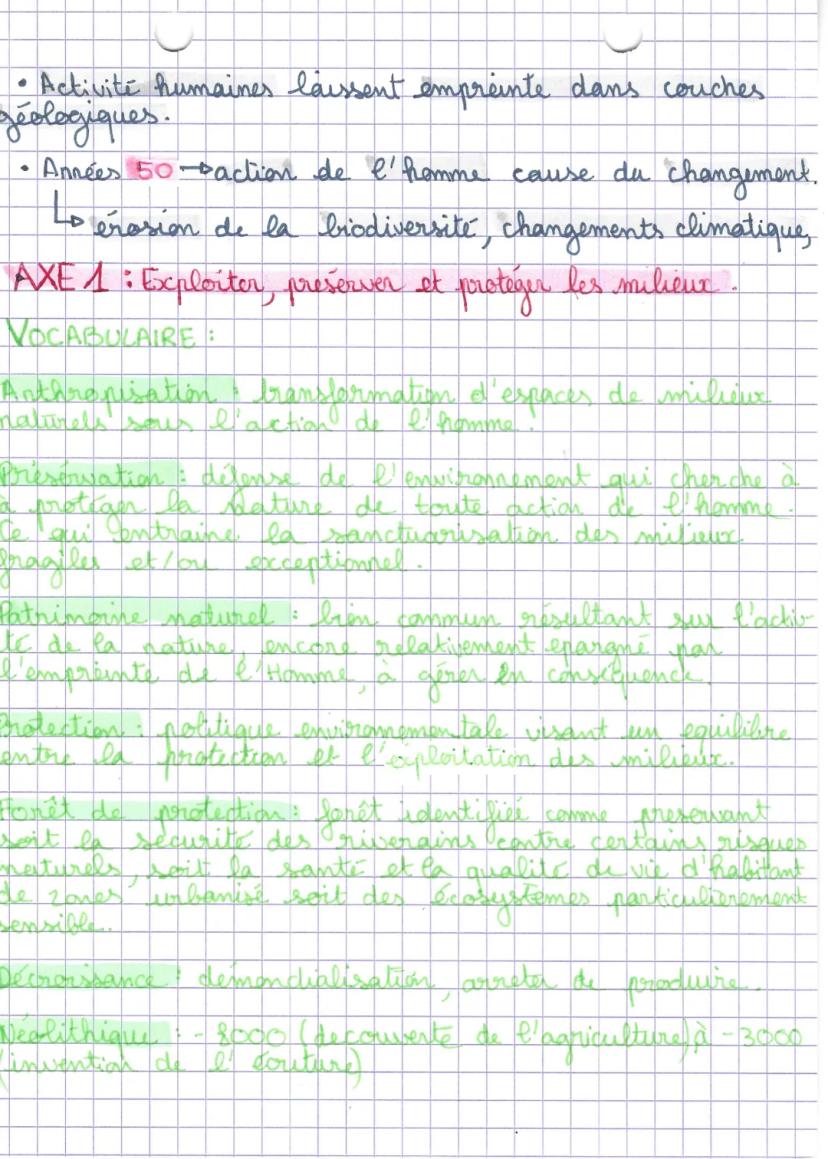 • Activité humaines laissent empreinte dans couches
géologiques.
• Années 50 → action de l'homme cause du changement.
↳ érosion de la biodiversité, changements climatique,
AXE 1 : Exploiter, préserver et protéger les milieux.
VOCABULAIRE :
Anthropisation : transformation d'espaces de milieux
naturels sous l'action de l'homme.
Préservation : défense de l'environnement qui cherche à
à protéger la Nature de toute action de l'homme.
Ce qui entraine la sanctuarisation des milieux
fragiles et/ou exceptionnel.
Patrimoine naturel : bien commun résultant sur l'activ-
té de la nature, encore relativement épargné par
l'empreinte de l'Homme, à gérer en conséquence.
Protection : politique environnementale visant un equilibre
entre la protection et l'exploitation des milieux.
Forêt de protection : forêt identifiée comme preservant
soit la sécurité des riverains contre certains risques
naturels, soit la santé et la qualité de vie d'habitant
de zones urbanisé soit des écosystèmes particulièrement
sensible.
Décroissance : démondialisation, arreter de produire.
Néolithique : -8000 (decouverte de l'agriculture) à -3000
(invention de l'écriture)